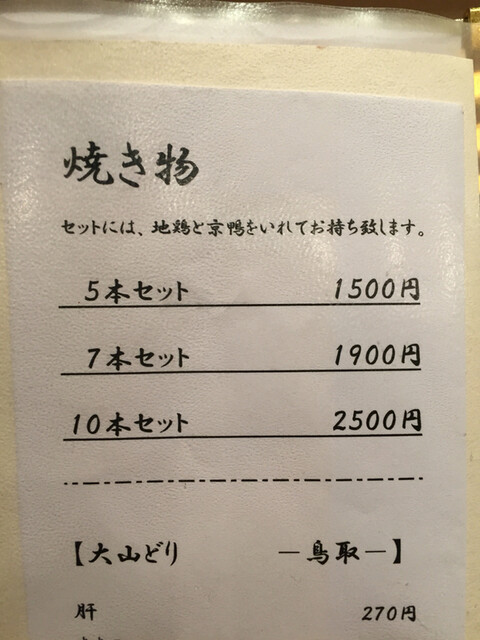 焼き物
セットには、地鶏と京鴨をいれてお持ち致します。
5本セット 1500円
7本セット 1900円
10本セット 2500円
【大山どり ー鳥取ー】
肝 270円